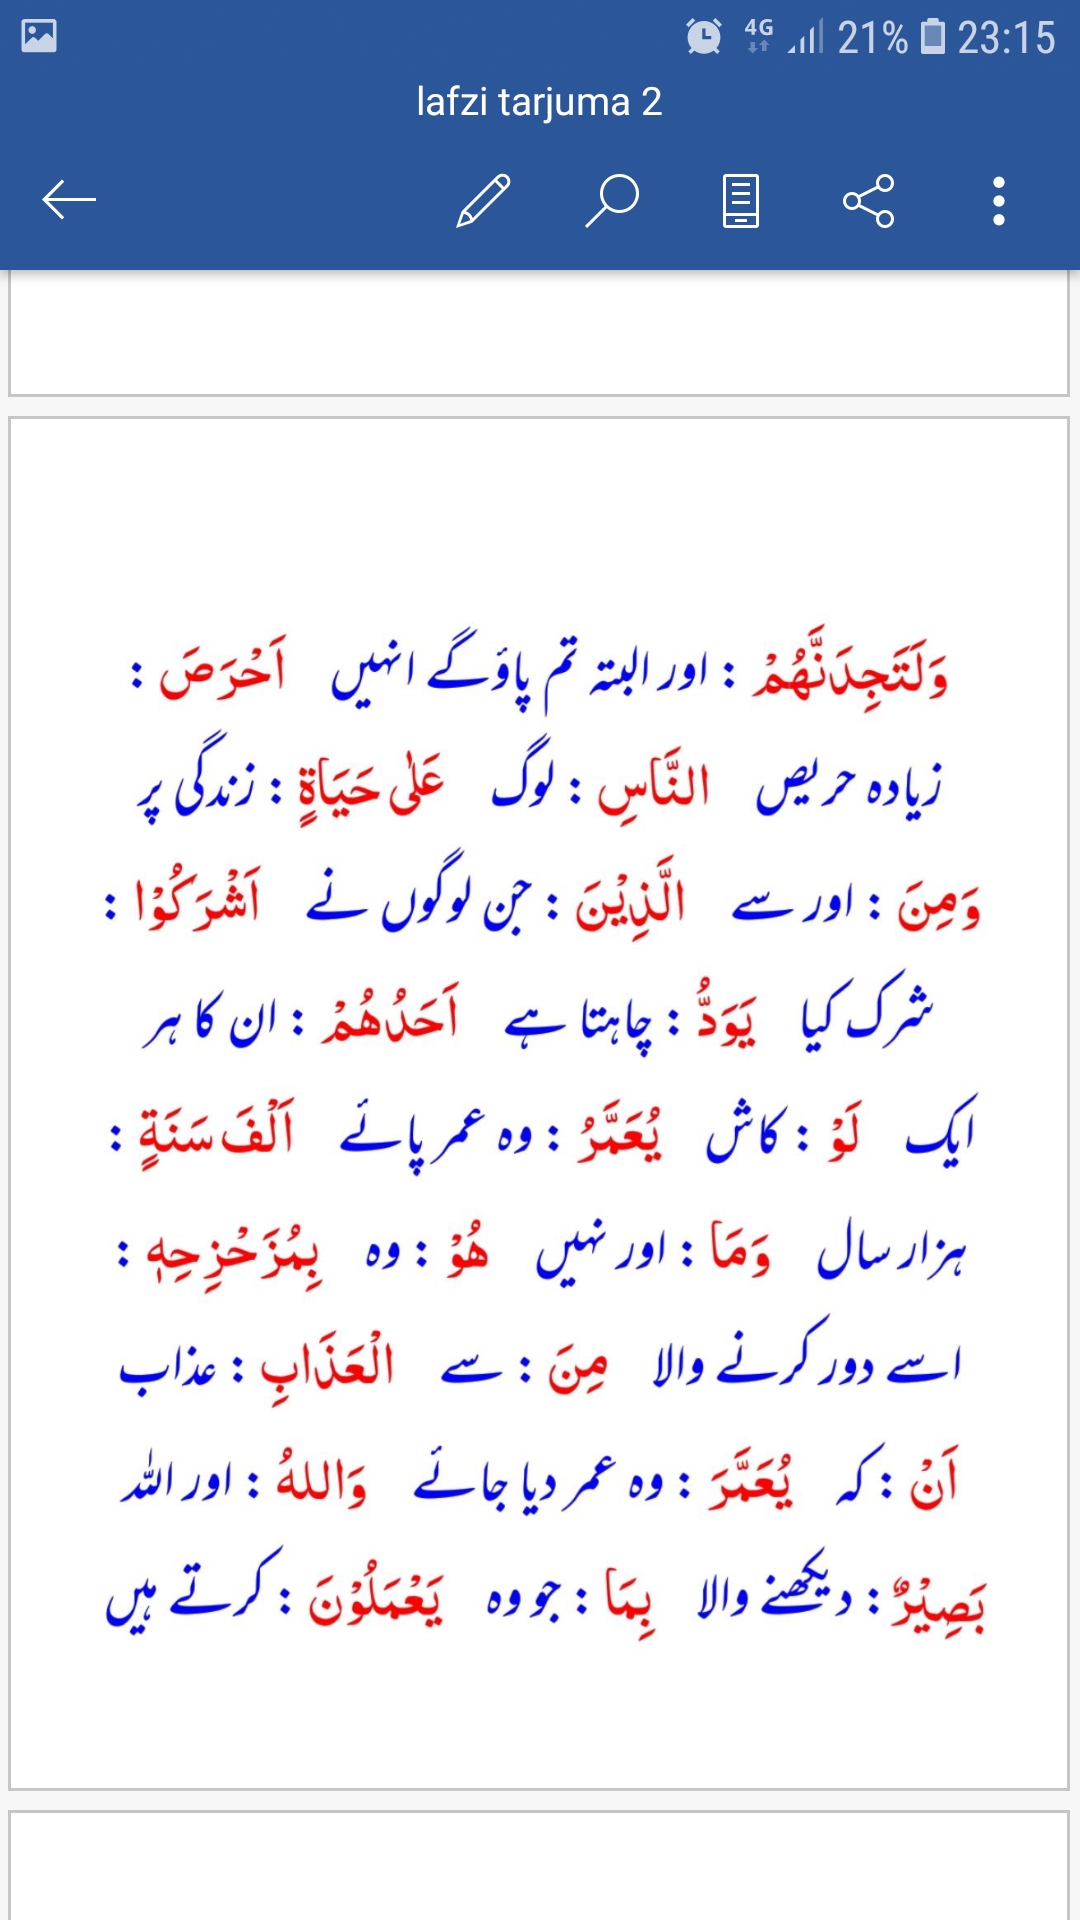 4G 21% 23:15
lafzi tarjuma 2
وَلَتَجِدَنَّهُمْ : اور البتہ تم پاؤ گے انہیں اَحْرَصَ :
زیادہ حریص النَّاسِ : لوگ عَلٰی حَیَاةٍ : زندگی پر
وَمِنَ : اور سے الَّذِیْنَ : جن لوگوں نے اَشْرَکُوْا :
شرک کیا یَوَدُّ : چاہتا ہے اَحَدُهُمْ : ان کا ہر
ایک لَوْ : کاش یُعَمَّرُ : وہ عمر پائے اَلْفَ سَنَةٍ :
ہزار سال وَمَا : اور نہیں هُوْ : وہ بِمُزَحْزِحِهٖ :
اسے دور کرنے والا مِنَ : سے الْعَذَابِ : عذاب
اَنْ : کہ یُعَمَّرَ : وہ عمر دیا جائے وَاللهُ : اور اللہ
بَصِیْرٌ : دیکھنے والا بِمَا : جو وہ یَعْمَلُوْنَ : کرتے ہیں